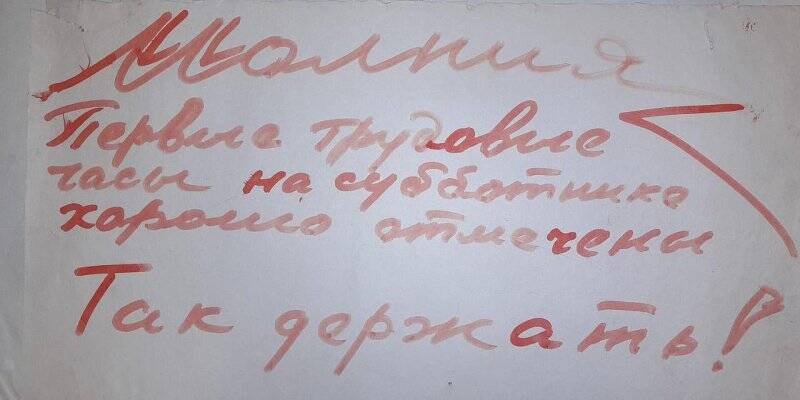 Молния
Первые трудовые
часы на субботнике
хорошо отмечены
Так держать!